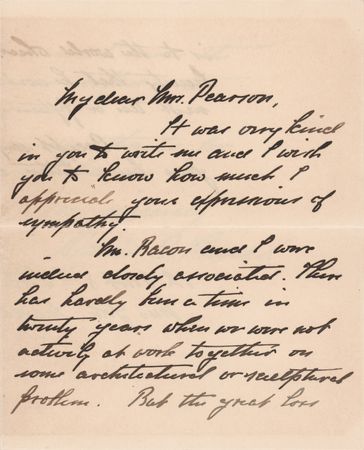 My dear Mrs. Pearson,
It was very kind
in you to write me and I wish
you to know how much I
appreciate your expressions of
sympathy.
Mr. Bacon and I were
indeed closely associated. There
has hardly been a time in
twenty years when we were not
actively at work together on
some architectural or sculptural
problem. But the great loss